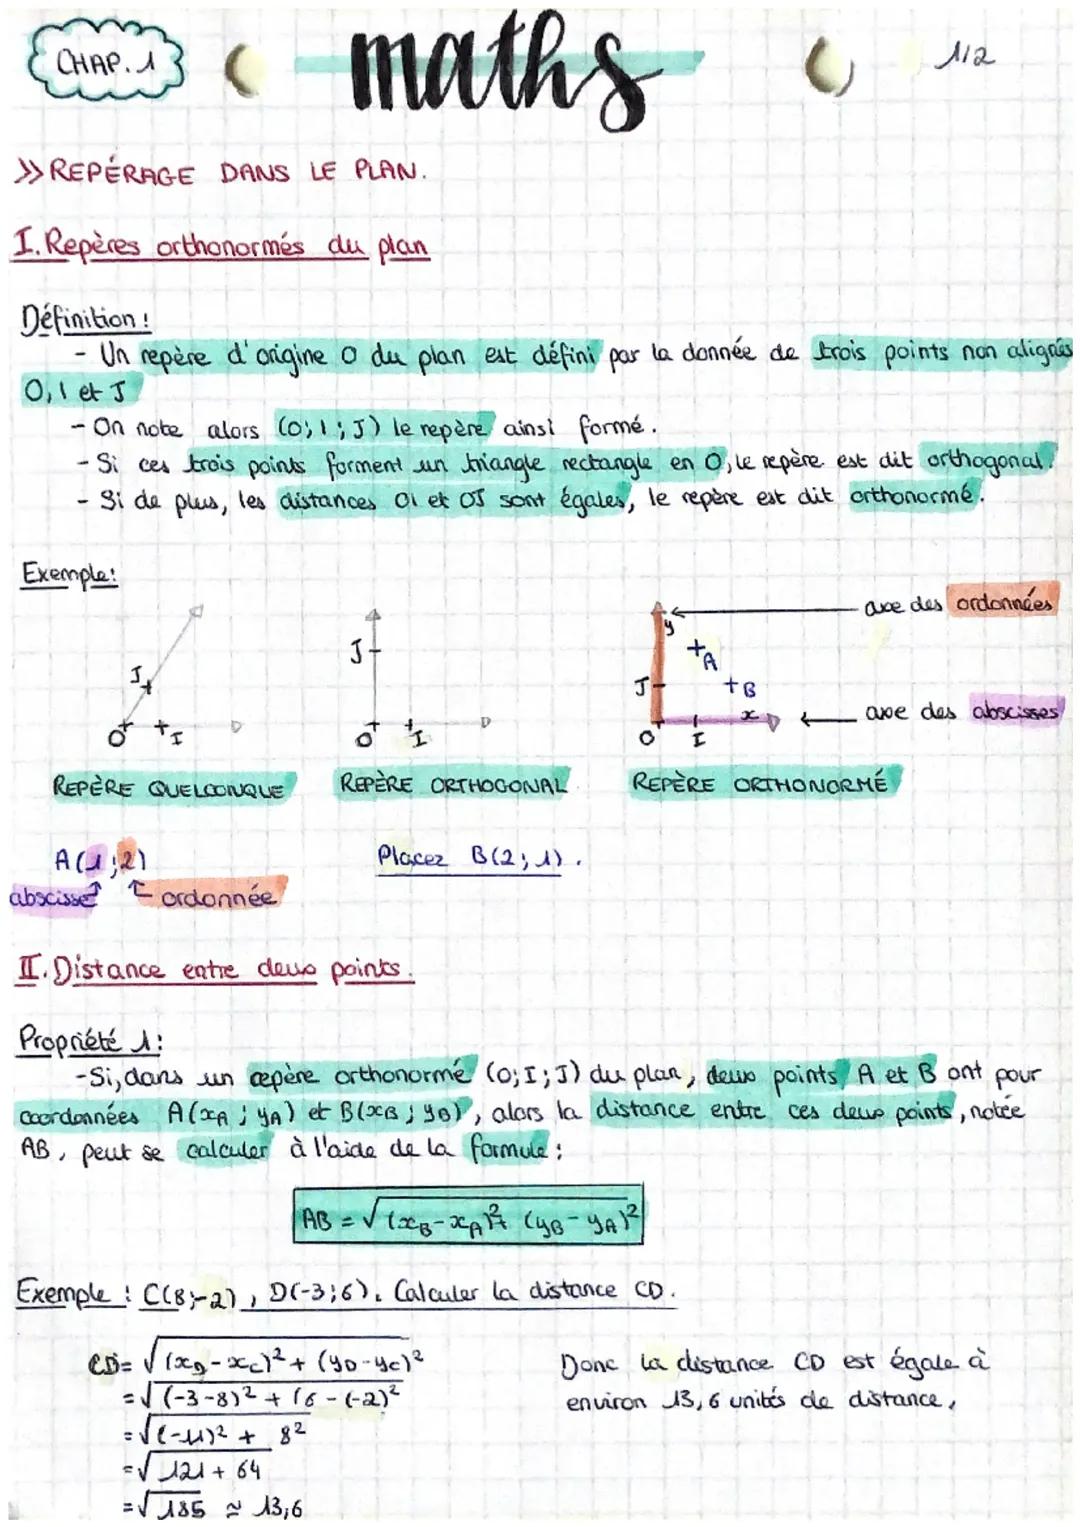 CHAP. 1
maths
1/2
>> REPÉRAGE DANS LE PLAN.
I. Repères orthonormés du plan
Définition :
- Un repère d'origine O du plan est défini par la donnée de trois points non alignés
O, I et J
- On note alors (O; I; J) le repère ainsi formé.
- Si ces trois points forment un triangle rectangle en O, le repère est dit orthogonal.
- Si de plus, les distances OI et OJ sont égales, le repère est dit orthonormé.
Exemple :
axe des ordonnées
J
J
y
A
J
B
x
axe des abscisses
O
I
O
I
O
I
REPÈRE QUELCONQUE
REPÈRE ORTHOGONAL
REPÈRE ORTHONORMÉ
A(1;2)
Placez B(2; 1).
abscisse
ordonnée
II. Distance entre deux points.
Propriété 1 :
- Si, dans un repère orthonormé (O; I; J) du plan, deux points A et B ont pour
coordonnées A(xA ; yA) et B(xB ; yB), alors la distance entre ces deux points, notée
AB, peut se calculer à l'aide de la formule :
AB = √(xB - xA)² + (yB - yA)²
Exemple : C(8;-2), D(-3;6). Calculer la distance CD.
CD = √(xD - xC)² + (yD - yC)²
Donc la distance CD est égale à
= √(-3-8)² + (6-(-2)²
environ 13,6 unités de distance.
= √(-11)² + 8²
= √121 + 64
= √185 ≃ 13,6